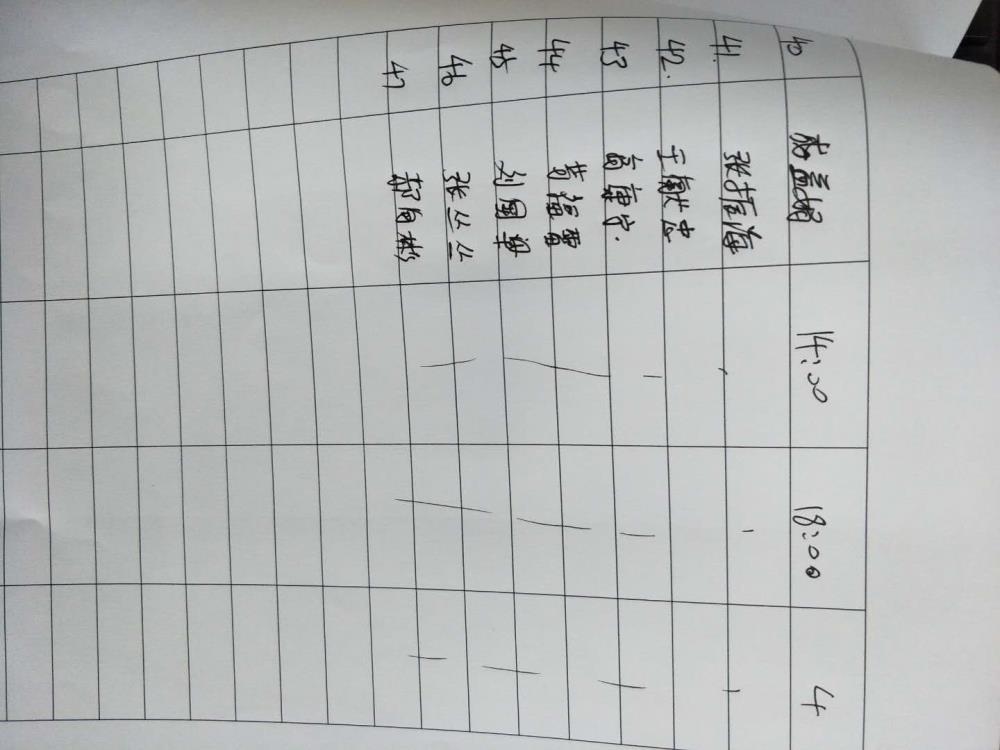 40 14:00 18:00 4
41. 张振海
42. 王献忠
43 高康宁.
44 黄福雷
45 刘国华
46 张丛丛
47 郝自彬